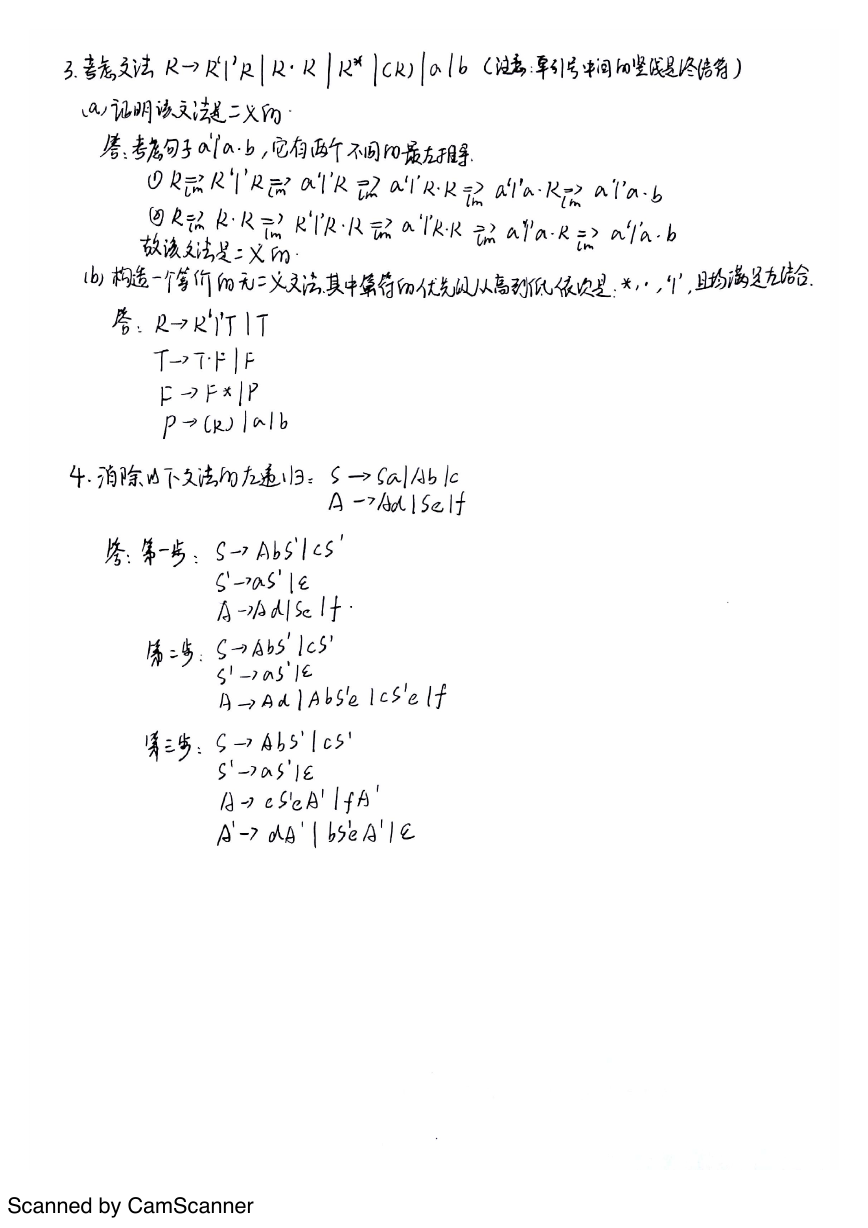 3. 考虑文法 R→R'|'R | R·R | R* | (R) | a | b (注意:单引号中间的竖线是终结符)
(a) 证明该文法是二义的.
答:考虑句子a'|'a·b,它有两个不同的最左推导.
① R⇒lm R'|'R ⇒lm a'|'R ⇒lm a'|'R·R ⇒lm a'|'a·R ⇒lm a'|'a·b
② R⇒lm R·R ⇒lm R'|'R·R ⇒lm a'|'R·R ⇒lm a'|'a·R ⇒lm a'|'a·b
故该文法是二义的.
(b) 构造一个等价的无二义文法,其中算符的优先级从高到低依次是:*,·,'|',且均满足左结合.
答: R→R'|'T | T
T→T·F | F
F→F* | P
P→(R) | a | b
4. 消除以下文法的左递归: S→Sa | Ab | c
A→Ad | Se | f
答:第一步: S→AbS' | cS'
S'→aS' | ε
A→Ad | Se | f.
第二步: S→AbS' | cS'
S'→aS' | ε
A→Ad | AbS'e | cS'e | f
第三步: S→AbS' | cS'
S'→aS' | ε
A→cS'eA' | fA'
A'→dA' | bS'eA' | ε
Scanned by CamScanner